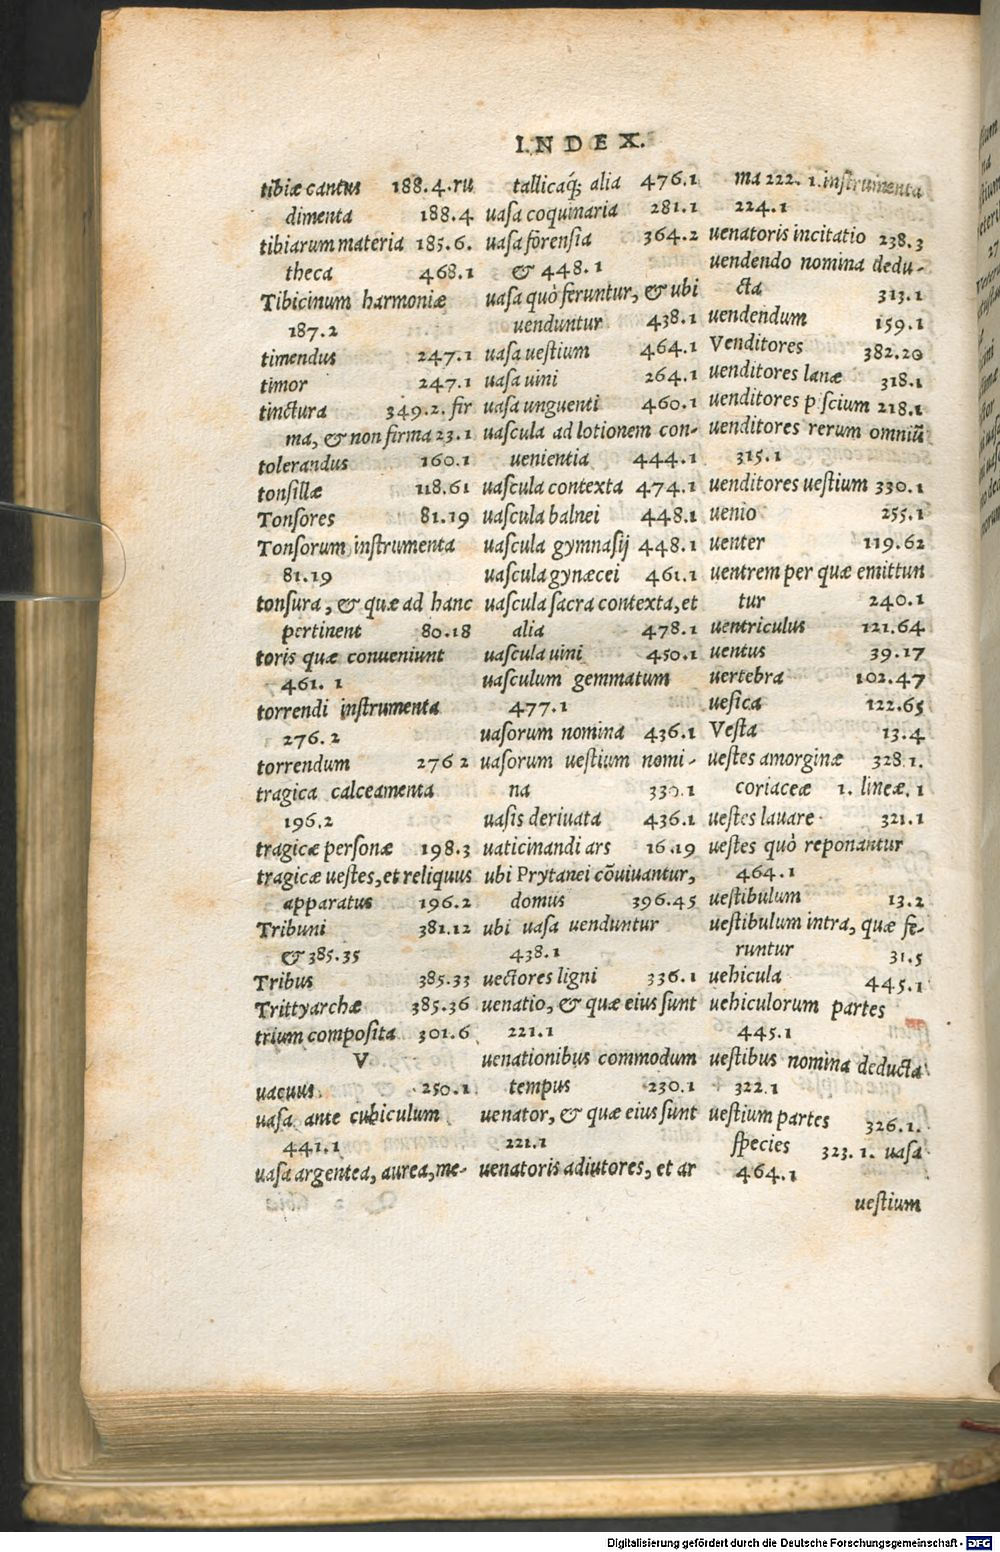 INDEX.
tibiæ cantus 188.4.ru
dimenta 188.4
tibiarum materia 185.6.
theca 468.1
Tibicinum harmoniæ
187.2
timendus 247.1
timor 247.1
tinctura 349.2. fir
ma, & non firma 23.1
tolerandus 160.1
tonsillæ 118.61
Tonsores 81.19
Tonsorum instrumenta
81.19
tonsura, & quæ ad hanc
pertinent 80.18
toris quæ conueniunt
461. 1
torrendi instrumenta
276.2
torrendum 276 2
tragica calceamenta
196.2
tragicæ personæ 198.3
tragicæ uestes, et reliquus
apparatus 196.2
Tribuni 381.12
& 385.35
Tribus 385.33
Trittyarchæ 385.36
trium composita 301.6
V
uacuus 250.1
uasa ante cubiculum
441.1
uasa argentea, aurea, me-
tallicaq́; alia 476.1
uasa coquinaria 281.1
uasa forensia 364.2
& 448.1
uasa quò feruntur, & ubi
uenduntur 438.1
uasa uestium 464.1
uasa uini 264.1
uasa unguenti 460.1
uascula ad lotionem con-
uenientia 444.1
uascula contexta 474.1
uascula balnei 448.1
uascula gymnasij 448.1
uascula gynæcei 461.1
uascula sacra contexta, et
alia 478.1
uascula uini 450.1
uasculum gemmatum
477.1
uasorum nomina 436.1
uasorum uestium nomi-
na 330.1
uasis deriuata 436.1
uaticinandi ars 16.19
ubi Prytanei cōuiuantur,
domus 396.45
ubi uasa uenduntur
438.1
uectores ligni 336.1
uenatio, & quæ eius sunt
221.1
uenationibus commodum
tempus 230.1
uenator, & quæ eius sunt
221.1
uenatoris adiutores, et ar
ma 222. 1. instrumenta
224.1
uenatoris incitatio 238.3
uendendo nomina dedu-
cta 313.1
uendendum 159.1
Venditores 382.20
uenditores lanæ 318.1
uenditores p scium 218.1
uenditores rerum omniū
315.1
uenditores uestium 330.1
uenio 255.1
uenter 119.62
uentrem per quæ emittun
tur 240.1
uentriculus 121.64
uentus 39.17
uertebra 102.47
uesica 122.65
Vesta 13.4
uestes amorginæ 328.1.
coriaceæ 1. lineæ. 1
uestes lauare 321.1
uestes quò reponantur
464.1
uestibulum 13.2
uestibulum intra, quæ fe-
runtur 31.5
uehicula 445.1
uehiculorum partes
445.1
uestibus nomina deducta
322.1
uestium partes 326.1.
species 323. 1. uasa
464.1
uestium
Digitalisierung gefördert durch die Deutsche Forschungsgemeinschaft - DFG